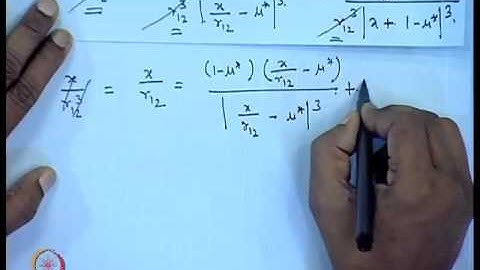 r₁₂³ |x/r₁₂ - μ*|³ r₁₂³ |x + 1-μ*|³
x/r₁₂³ = x/r₁₂ = (1-μ*) (x/r₁₂ - μ*) / |x/r₁₂ - μ*|³ +